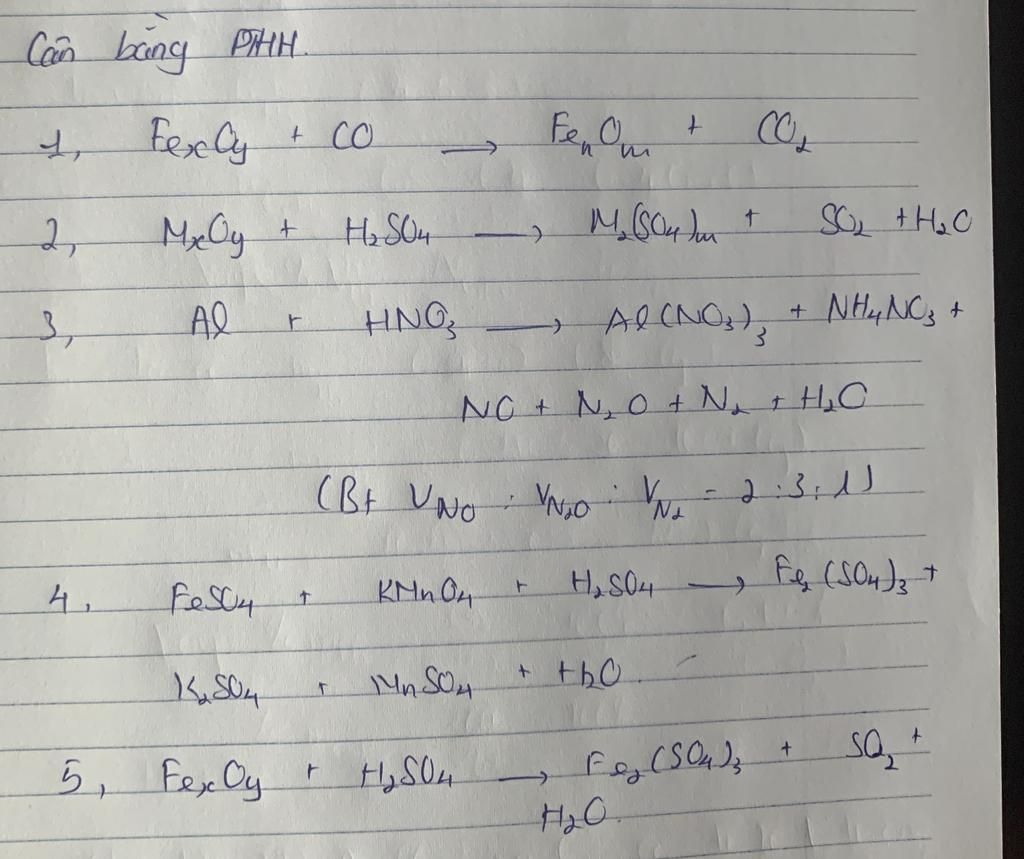 Cân bằng PTHH.
1, FexOy + CO → FenOm + CO2
2, MxOy + H2SO4 → M2(SO4)m + SO2 + H2O
3, Al + HNO3 → Al(NO3)3 + NH4NO3 +
NO + N2O + N2 + H2O
(Bt VNO : VN2O : VN2 = 2 : 3 : 1)
4, FeSO4 + KMnO4 + H2SO4 → Fe2(SO4)3 +
K2SO4 + MnSO4 + H2O
5, FexOy + H2SO4 → Fe2(SO4)3 + SO2 +
H2O.